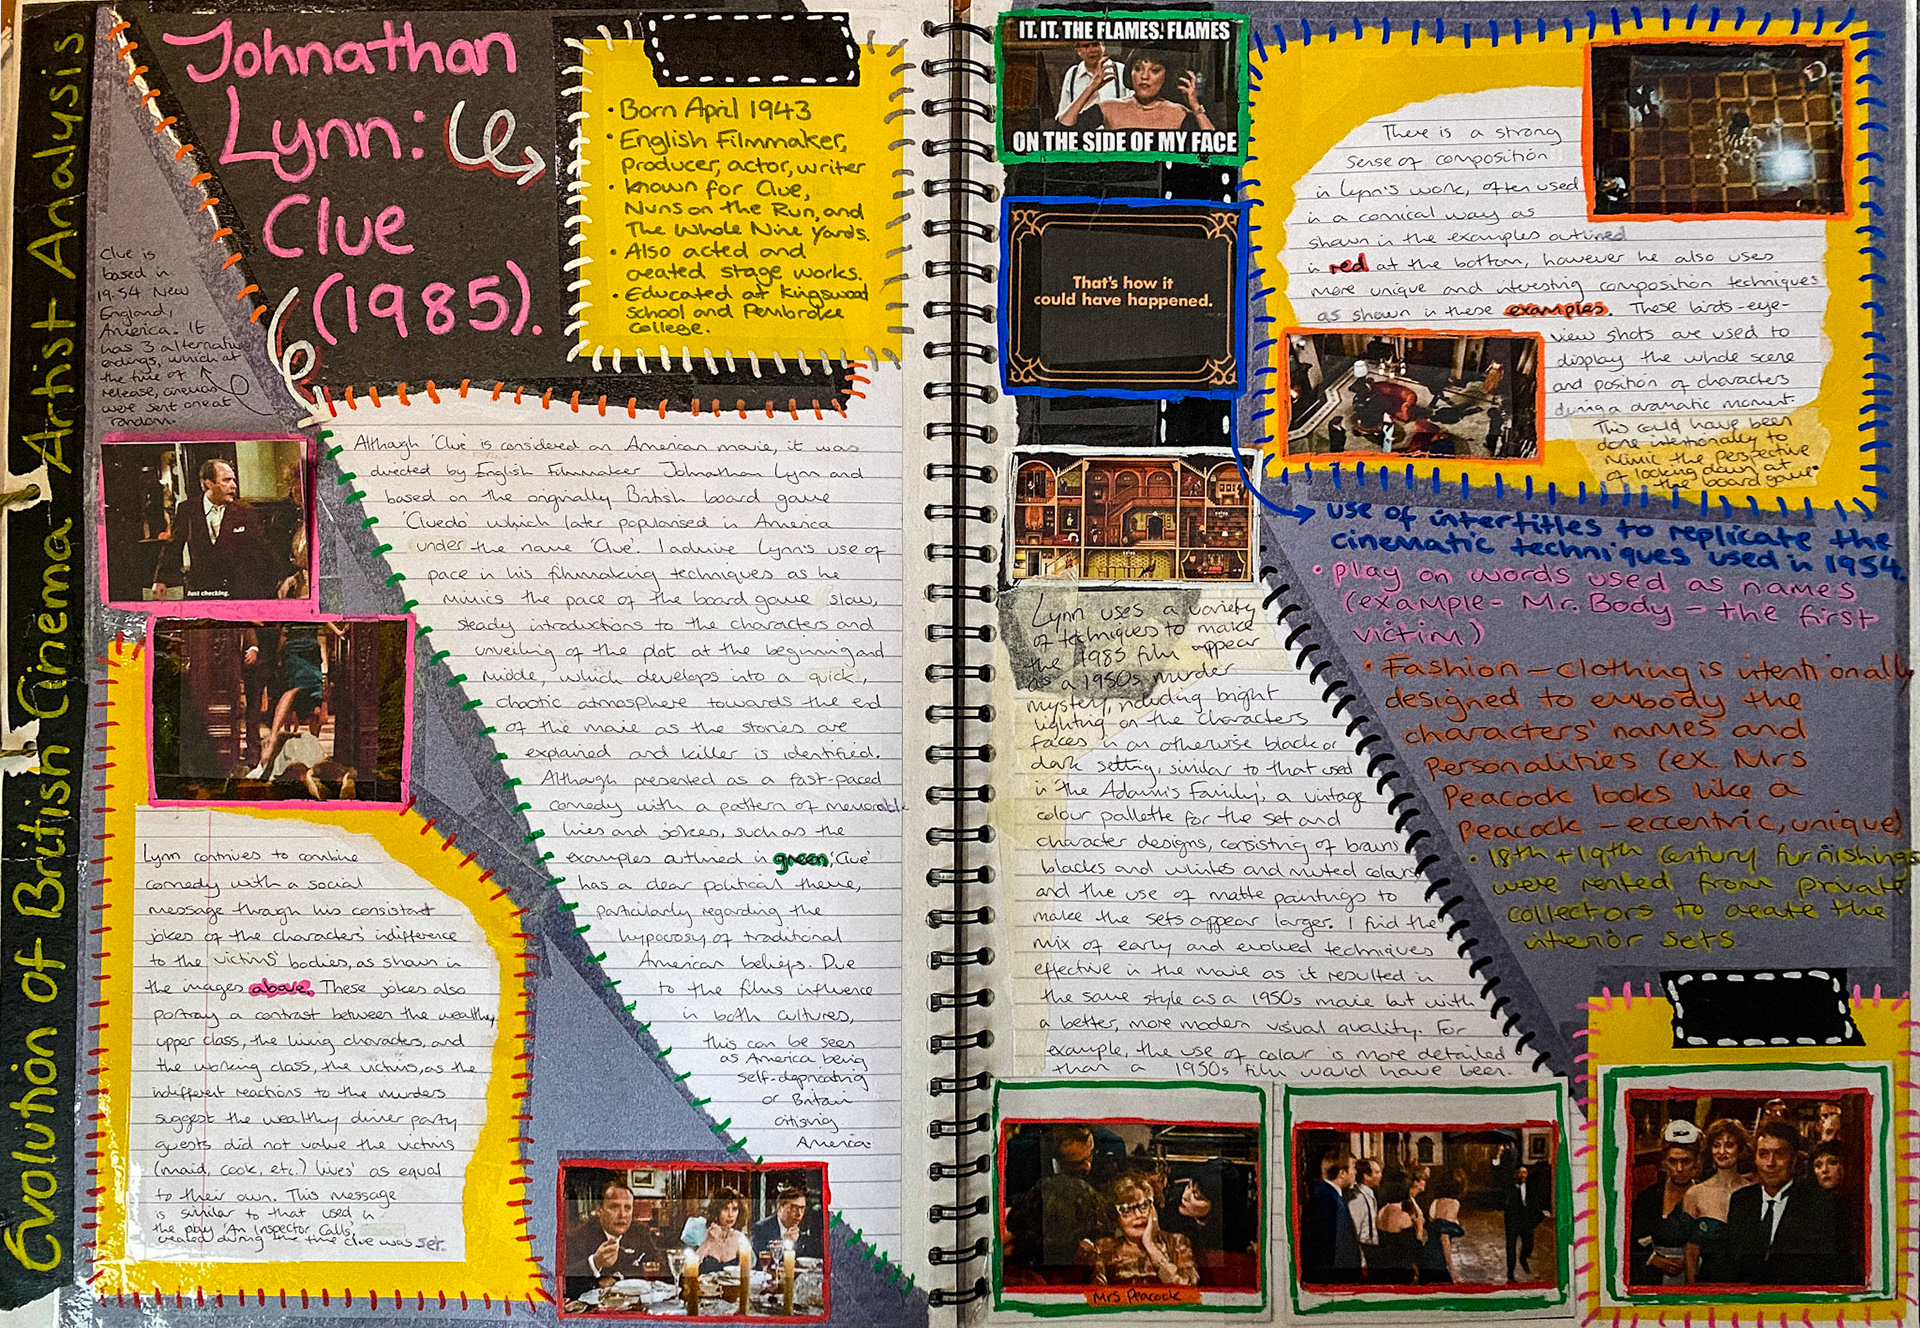 Evolution of British Cinema Artist Analysis
Johnathan
Lynn:
Clue
(1985).
• Born April 1943
• English Filmmaker,
producer, actor, writer
• known for Clue,
Nuns on the Run, and
The Whole Nine Yards.
• Also acted and
created stage works.
• Educated at Kingswood
School and Pembroke
College.
Clue is
based in
1954 New
England,
America. It
has 3 alternative
endings, which at
the time of
release, cinemas
were sent one at
random.
Just checking.
Although 'Clue' is considered an American movie, it was
directed by English Filmmaker Johnathan Lynn and
based on the originally British board game
'Cluedo' which later popularised in America
under the name 'Clue'. I admire Lynn's use of
pace in his filmmaking techniques as he
mimics the pace of the board game slow,
steady introductions to the characters and
unveiling of the plot at the beginning and
middle, which develops into a quick,
chaotic atmosphere towards the end
of the movie as the stories are
explained and killer is identified.
Although presented as a fast-paced
comedy with a pattern of memorable
lines and jokes, such as the
examples outlined in green, 'Clue'
has a clear political theme,
particularly regarding the
hypocrosy of traditional
American beliefs. Due
to the films influence
in both cultures,
this can be seen
as America being
self-depricating
or Britain
citising
America.
Lynn continues to combine
comedy with a social
message through his consistant
jokes of the characters' indifference
to the victims' bodies, as shown in
the images above. These jokes also
portray a contrast between the wealthy,
upper class, the living characters, and
the working class, the victims, as the
indifferent reactions to the murders
suggest the wealthy dinner party
guests did not value the victims
(maid, cook, etc.) lives' as equal
to their own. This message
is similar to that used in
the play 'An Inspector Calls',
created during the time Clue was set.
IT. IT. THE FLAMES. FLAMES
ON THE SIDE OF MY FACE
That's how it
could have happened.
There is a strong
sense of composition
in Lynn's work, often used
in a comical way as
shown in the examples outlined
in red at the bottom, however he also uses
more unique and interesting composition techniques
as shown in these examples. These birds-eye-
view shots are used to
display the whole scene
and position of characters
during a dramatic moment.
This could have been
done intentionally to
mimic the perspective
of looking down at
the board game.
use of intertitles to replicate the
cinematic techniques used in 1954.
• play on words used as names
(example - Mr. Body - the first
victim)
• Fashion - clothing is intentionally
designed to embody the
characters' names and
personalities (ex. Mrs
Peacock looks like a
Peacock - eccentric, unique)
• 18th + 19th Century furnishings
were rented from private
collectors to create the
interior sets
Lynn uses a variety
of techniques to make
the 1985 film appear
as a 1950s murder
mystery, including bright
lighting on the characters
faces in an otherwise black or
dark setting, similar to that used
in 'The Adam's Family', a vintage
colour pallette for the set and
character designs, consisting of browns
blacks and whites and muted colours
and the use of matte paintings to
make the sets appear larger. I find the
mix of early and evolved techniques
effective in the movie as it resulted in
the same style as a 1950s movie but with
a better, more modern visual quality. For
example, the use of colour is more detailed
than a 1950s film would have been.
Mrs Peacock